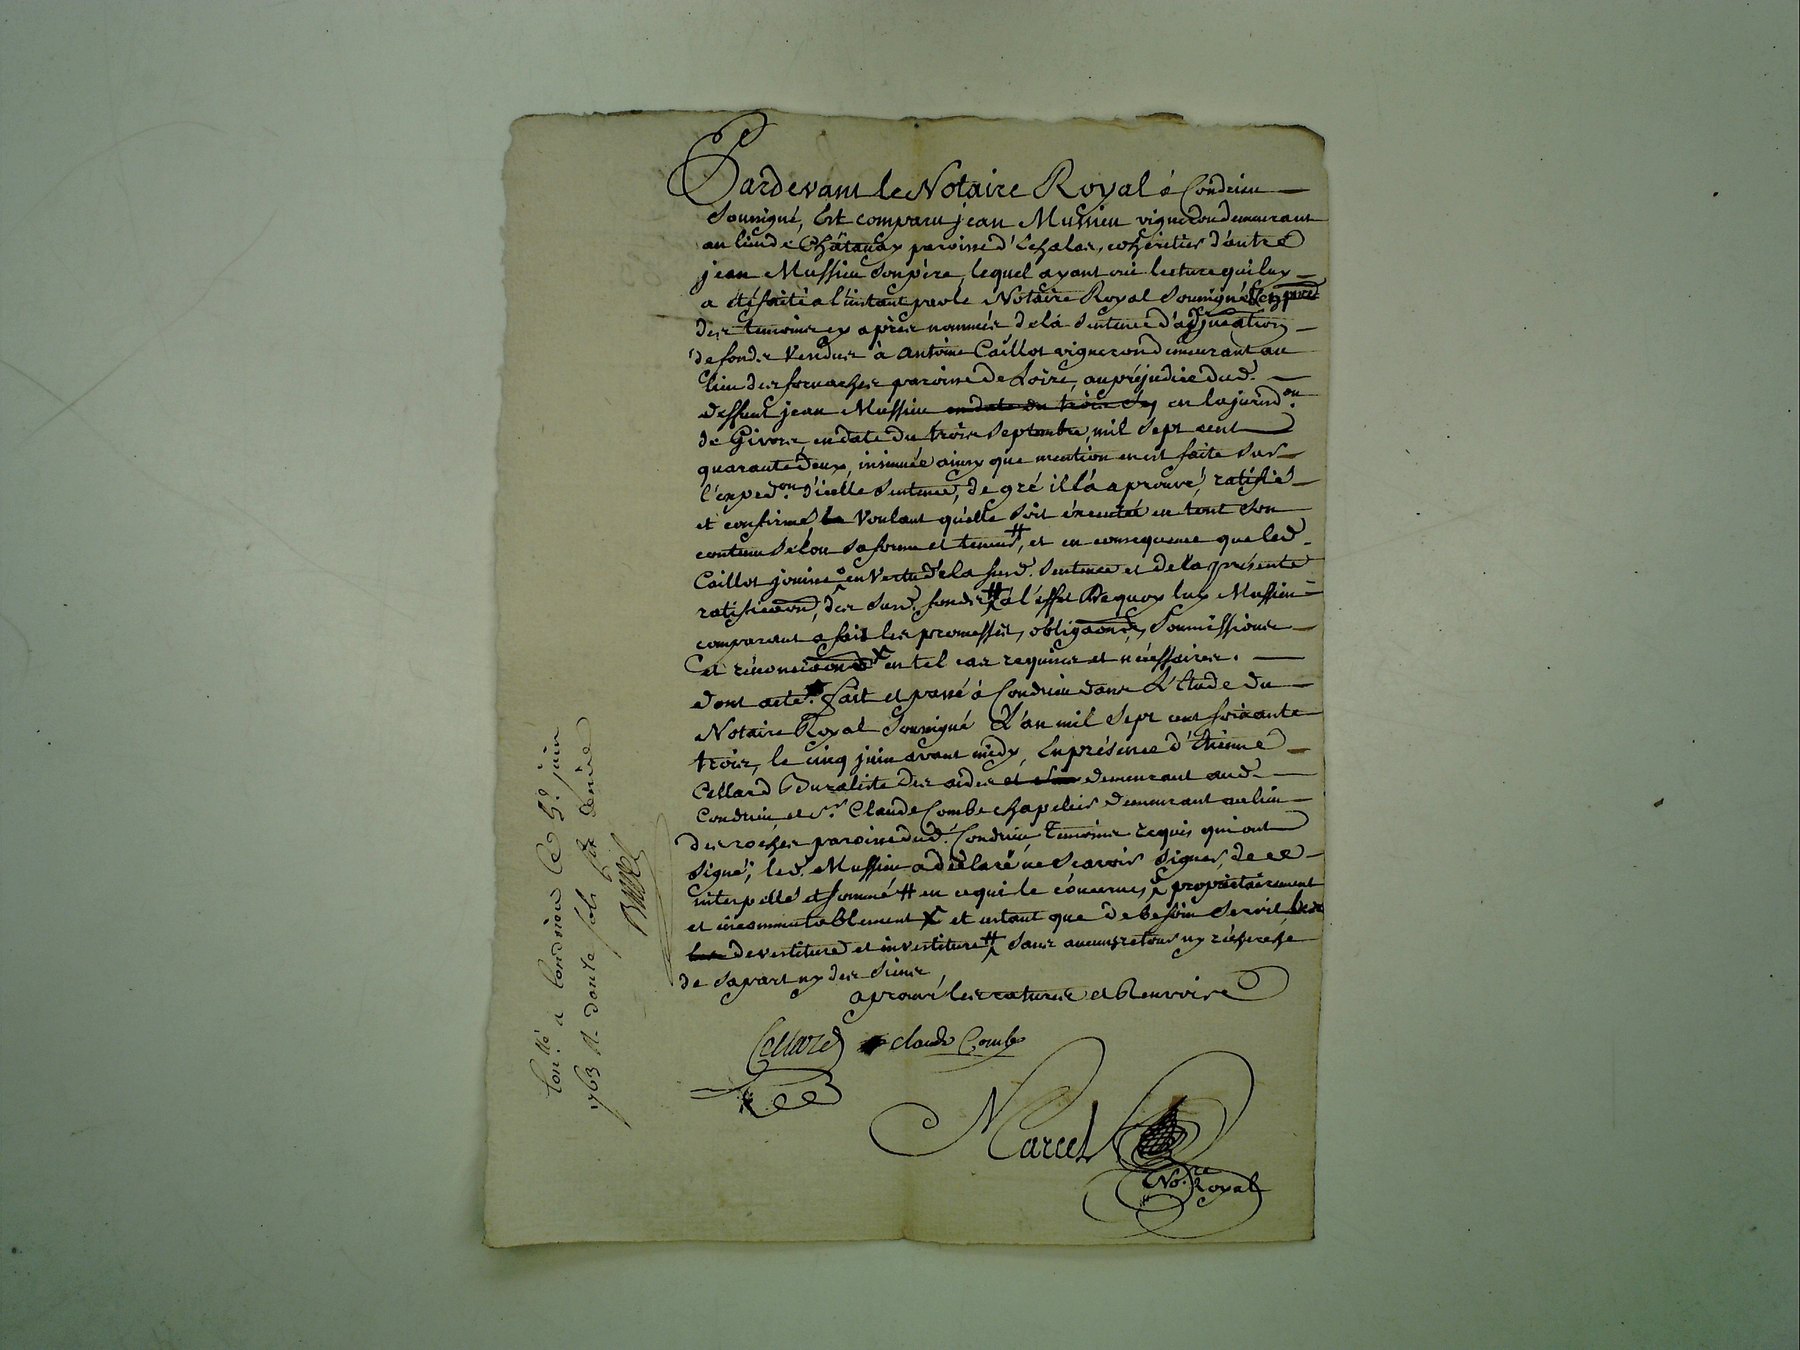 Pardevant le Notaire Royal à Condrieu
Soussigné, est comparu jean Mussieu vigneron demeurant
au lieu de Châtanay paroisse d'Echalas, cohéritier d'autre
jean Mussieu son père, lequel ayant oui lecture qui luy
a été faite à l'instant par le Notaire Royal soussigné
des temoins cy après nommés de la sentence d'adjudication
de fonds vendus à antoine Caillot vigneron demeurant au
lieu des fornaches paroisse de Loire, au préjudice dud.
deffunt jean Mussieu en date du trois en la jurisd.on
de Givors, en date du trois Septembre, mil Sept cent
quarante deux, insinuée ainsy que mention en est faite sur
l'exped.on d'icelle Sentence, de gré il l'a aprouvé, ratifié
et confirmé voulant qu'elle soit éxecuté en tout son
contenu selon sa forme et teneur #, et en consequence que led.
Caillot jouisse en vertu de la susd. Sentence et de la présente
ratification, des susd. fonds # à l'effet de quoy luy Mussieu
comparant a fait les promesses, obligaons, Soumissions
et rénonciaons en tel cas requises et nécessaires.
dont acte. fait et passé à Condrieu dans L'Etude du
Notaire Royal Soussigné L'an mil Sept cent soixante
trois, le cinq juin avant midy, En présence d'Etienne
Cellard Buraliste des aides et demeurant aud.
Condrieu et Sr. Claude Combe chapelier demeurant au lieu
des roches paroisse dud. Condrieu Temoins requis qui ont
signé; led. Mussieu a déclaré ne Scavoir signer, de ce
interpellé et sommé # en ce qui le concerne, proprietairement
et incommutablement X et entant que de besoin s'en est
devestiture et investiture # sans aucun retour ny récherche
de sa part ny des siens
aprouvé les ratures et Renvoirs
Cellard claude Combe
Marcel
No.re Royal
Con.llé à Condrieu Ce 5e. juin
1763 R. douze sols six denie